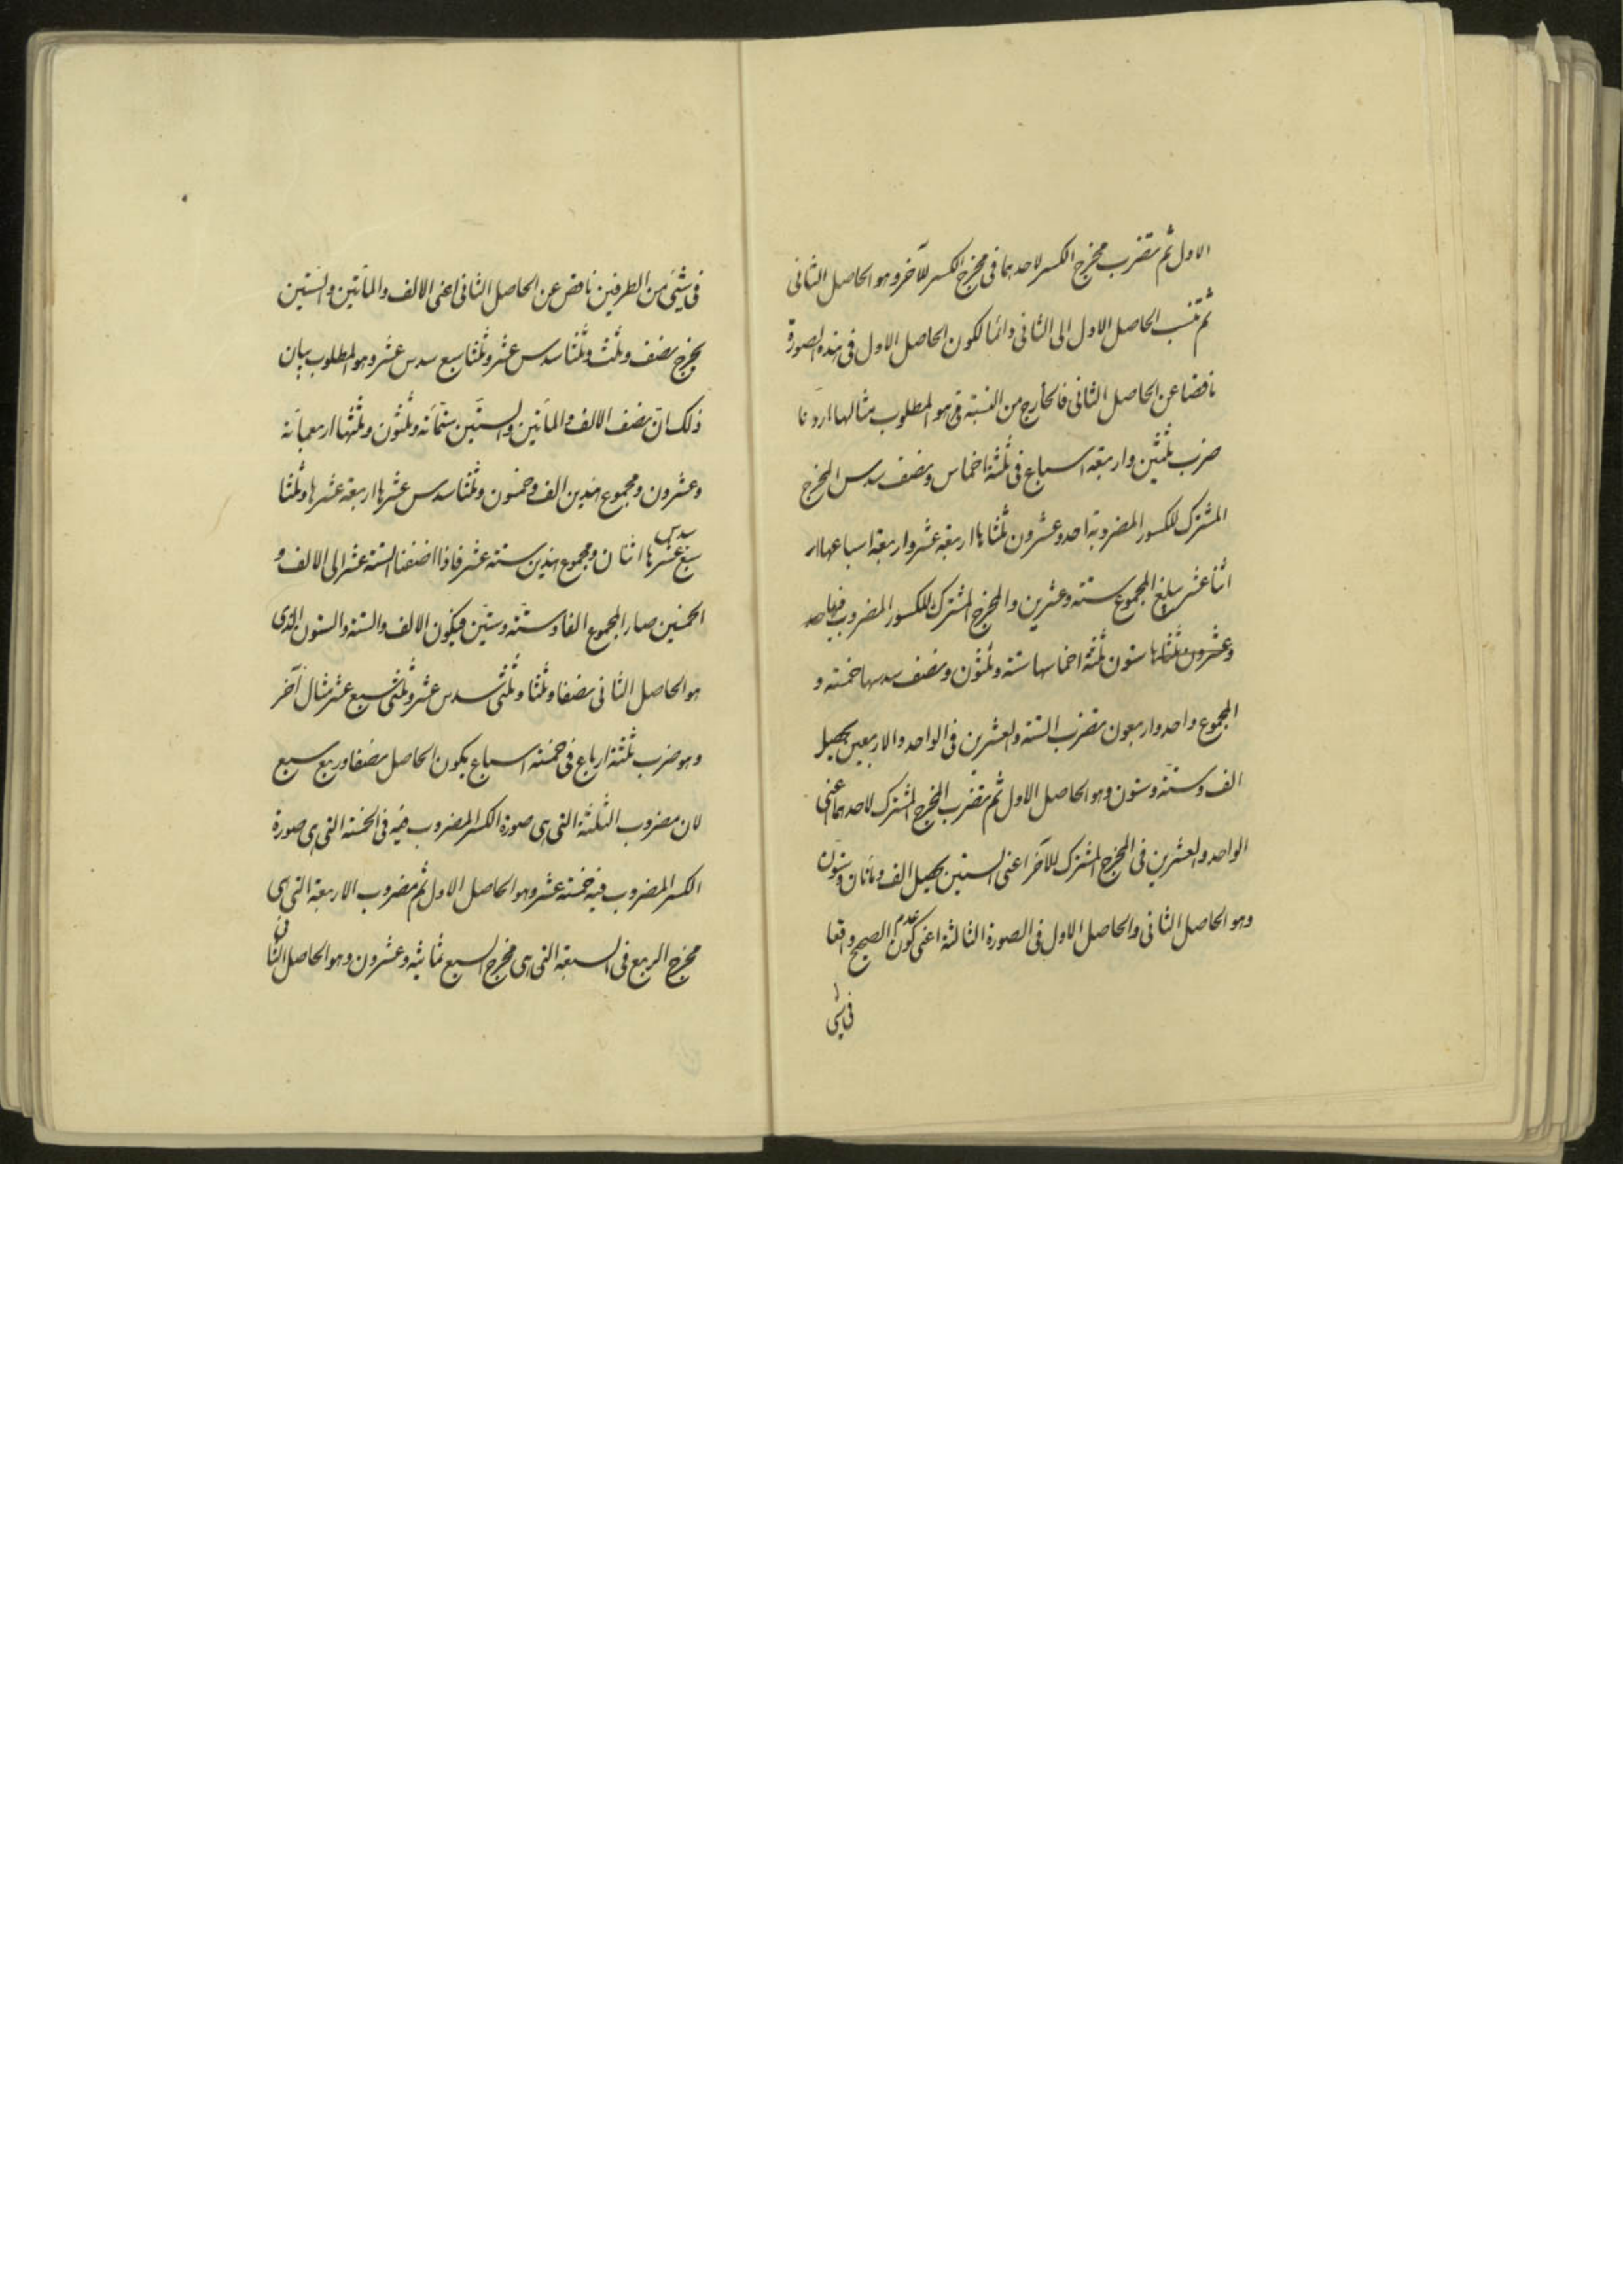 الاول ثم تضرب مخرج الكسر لاحدهما فى مخرج الكسر للآخر وهو الحاصل الثانى
ثم تنسب الحاصل الاول الى الثانى دائما لكون الحاصل الاول فى هذه الصورة
ناقصا عن الحاصل الثانى فالخارج من النسبة هو المطلوب مثالها اردنا
ضرب ثلثين واربعة اسباع فى ثلثة اخماس ونصف سدس المخرج
المشترك للكسور المضروبة احد وعشرون ثلثاها اربعة عشر واربعة اسباعها
اثنا عشر يبلغ المجموع ستة وعشرين والمخرج المشترك للكسور المضروب فيها
ستون ثلثة اخماسها ستة وثلثون ونصف سدسها خمسة و
المجموع واحد واربعون تضرب الستة والعشرين فى الواحد والاربعين يحصل
الف وستة وستون وهو الحاصل الاول ثم تضرب المخرج المشترك لاحدهما اعنى
الواحد والعشرين فى المخرج المشترك للآخر اعنى الستين يحصل الف ومائتان وستون
وهو الحاصل الثانى والحاصل الاول فى الصورة الثالثة اعنى عدم كون الصحيح واقعا
فى شئ
فى شئ من الطرفين ناقص عن الحاصل الثانى اعنى الالف والمائتين والستين
يخرج نصف وثلث وثلثا سدس عشر وثلثا سبع سدس عشر وهو المطلوب بيان
ذلك ان نصف الالف والمائتين والستين ستمائة وثلثون وثلثها اربعمائة
وعشرون ومجموع هذين الف وخمسون وثلثا سدس عشرها اربعة عشر وثلثا
سبع سدس عشرها اثنان ومجموع هذين ستة عشر فاذا اضفنا الستة عشر الى الالف و
الخمسين صار المجموع الفا وستة وستين فيكون الالف والستة والستون الذى
هو الحاصل الثانى نصفا وثلثا وثلثى سدس عشر وثلثى سبع عشر مثال آخر
وهو ضرب ثلثة ارباع فى خمسة اسباع يكون الحاصل نصفا وربع سبع
لان مضروب الثلثة التى هى صورة الكسر المضروب فيه فى الخمسة التى هى صورة
الكسر المضروب فيه خمسة عشر وهو الحاصل الاول ثم مضروب الاربعة التى هى
مخرج الربع فى السبعة التى هى مخرج السبع ثمانية وعشرون وهو الحاصل الثانى